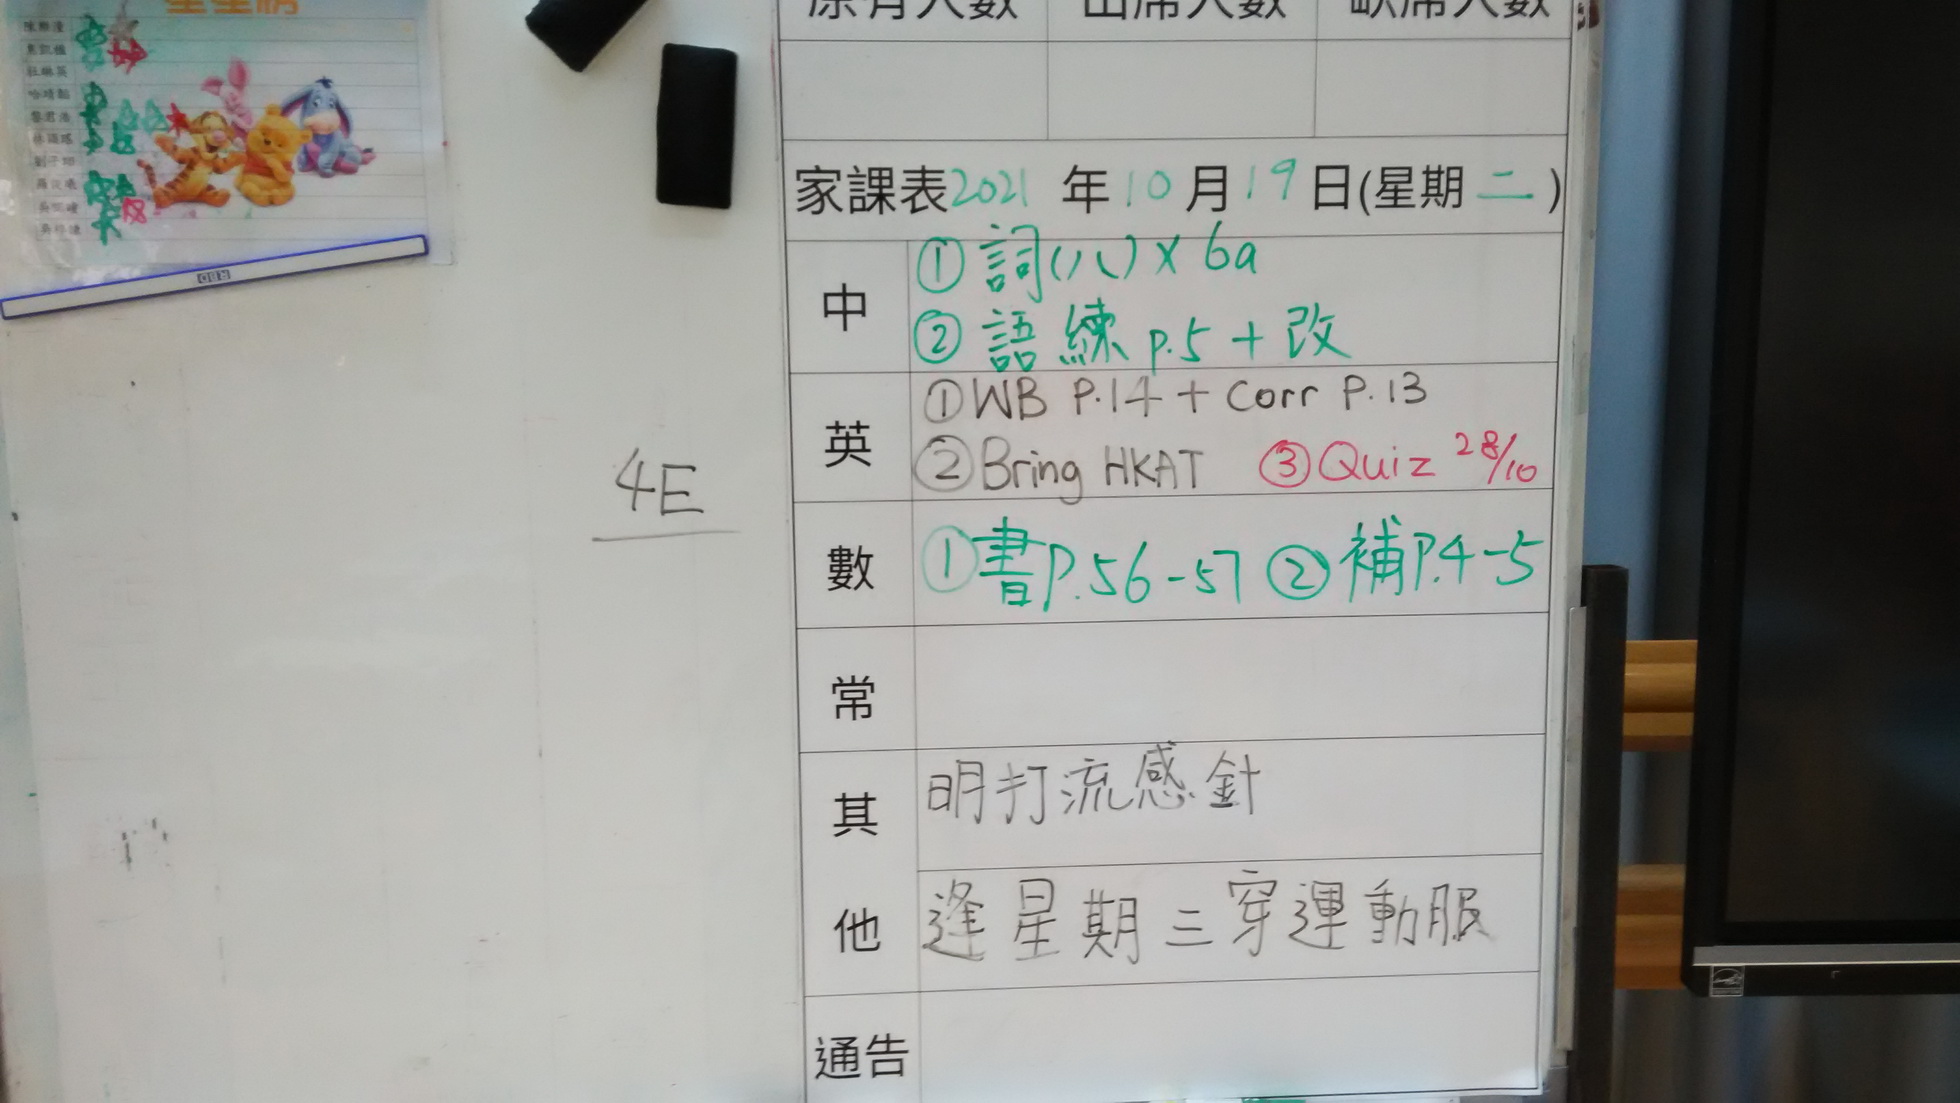 星星榜
原有人數 出席人數 缺席人數
家課表2021年10月19日(星期二)
中
①詞(八)x 6a
②語練 p.5 + 改
英
①WB P.14 + Corr P.13
②Bring HKAT ③Quiz 28/10
4E
數
①書P.56-57 ②補P.4-5
常
其他
明打流感針
逢星期三穿運動服
通告